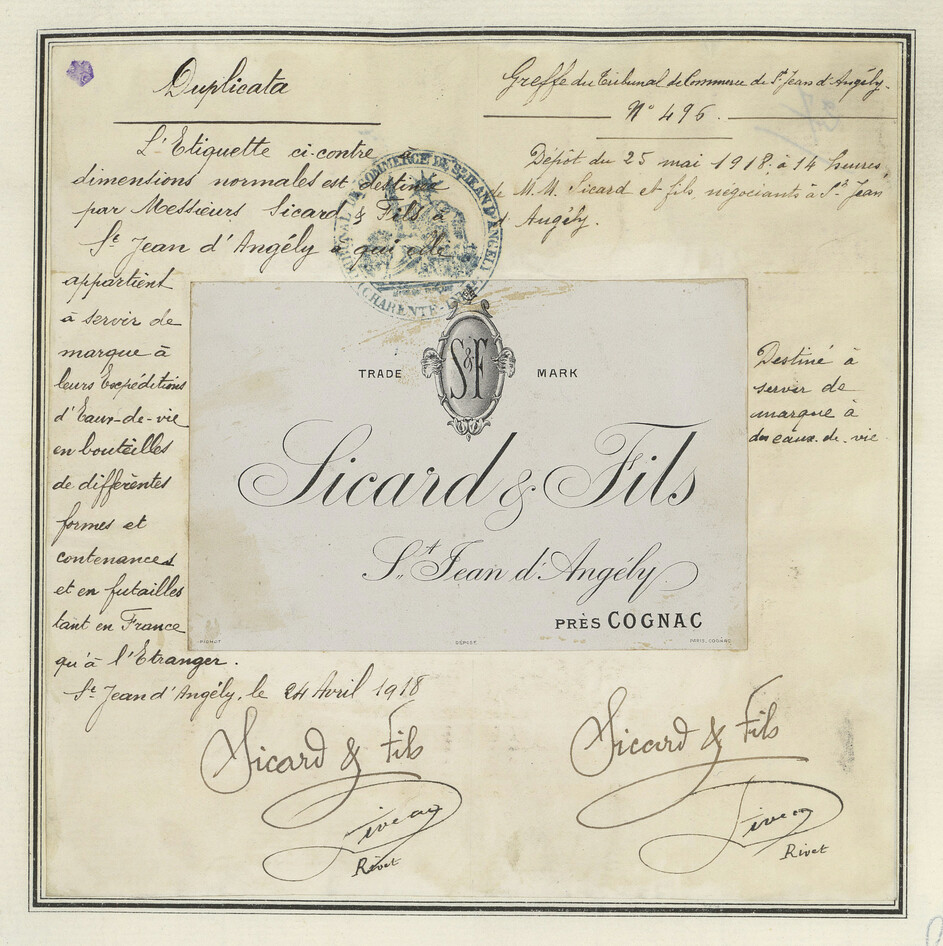 Duplicata
L'Etiquette ci-contre
dimensions normales est destinée
par Messieurs Sicard & Fils à
St Jean d'Angély à qui elle
appartient
à servir de
marque à
leurs Expéditions
d'Eaux-de-vie
en bouteilles
de différentes
formes et
contenances
et en futailles
tant en France
qu'à l'Etranger.
St Jean d'Angély, le 24 Avril 1918
Sicard & Fils
Rivet
Greffe du Tribunal de Commerce de St Jean d'Angély.
N° 496.
Dépôt du 25 mai 1918 à 14 heures,
de M.M. Sicard et fils, négociants à St Jean
d'Angély.
TRIBUNAL DE COMMERCE DE ST JEAN D'ANGELY
(CHARENTE-INFRE)
TRADE S&F MARK
Sicard & Fils
St Jean d'Angély
PRÈS COGNAC
DÉPOSÉ
PARIS, COGNAC
Destiné à
servir de
marque à
des eaux-de-vie.
Sicard & Fils
Rivet